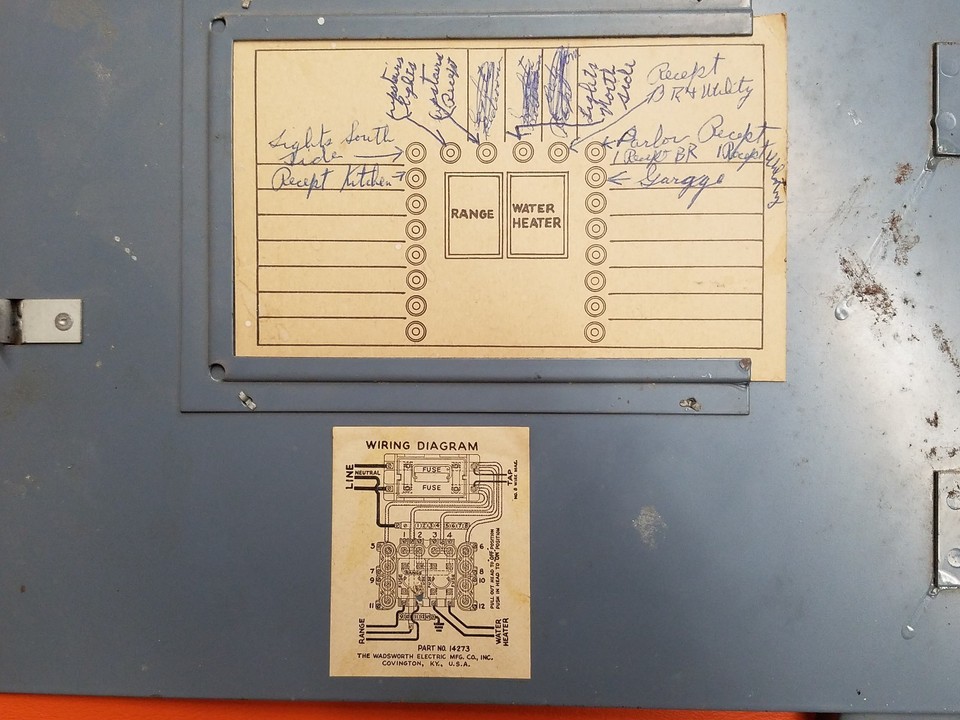 upstairs
lights
upstairs
Recept
Lights
North
side
Recept
BR + Utility
Lights South
Side
Recept Kitchen
Parlor Recept
1 Recept BR 1 Recept Utility
Garage
RANGE
WATER
HEATER
WIRING DIAGRAM
LINE
NEUTRAL
FUSE
FUSE
TAP
1 2 3 4
5 6
7 8
9 10
11 12
PULL OUT HEAD TO OFF POSITION
PUSH IN HEAD TO ON POSITION
RANGE
WATER
HEATER
PART NO. 14273
THE WADSWORTH ELECTRIC MFG. CO., INC.
COVINGTON, KY., U.S.A.